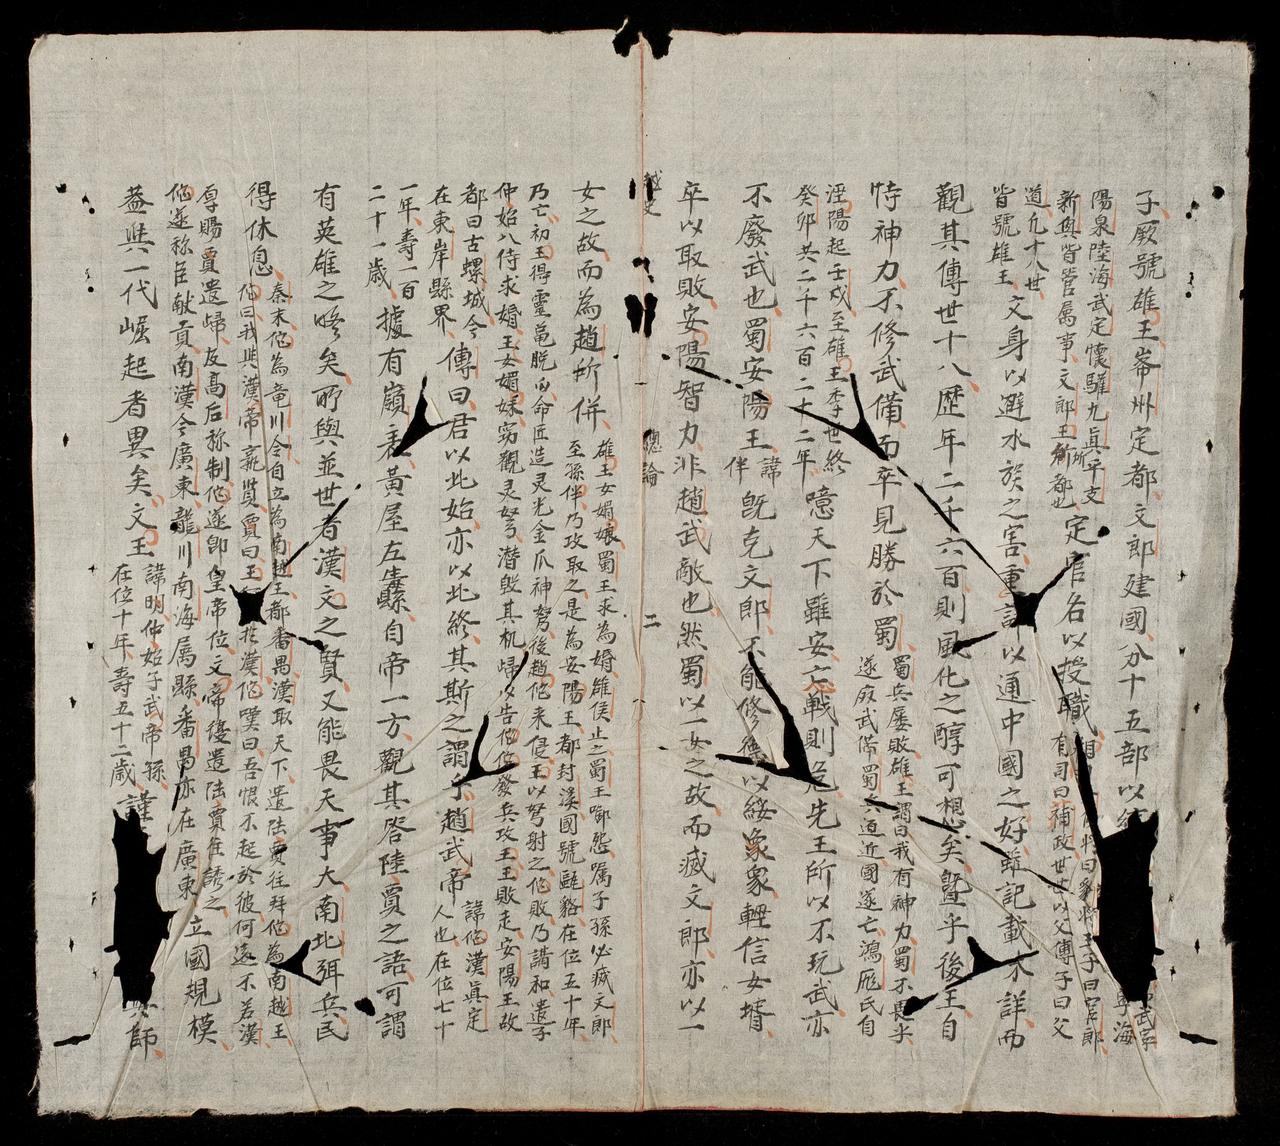 子厥號雄王峯州定都文郎建國分十五部以統
寧海
陽泉陸海武定懷驩九眞平文
新興皆管属事文郎王所都也
定官名以授職
相
將曰貉將王子曰官郎
有司曰補政世世以父傳子曰父
道凡十八世
皆號雄王
文身以避水族之害重譯以通中國之好雖記載不詳而
觀其傳世十八歷年二千六百則風化之醇可想矣曁乎後王自
恃神力不修武備而卒見勝於蜀
蜀兵屡敗雄王謂曰我有神力蜀不畏乎
遂廢武備蜀兵逼近國遂亡鴻厖氏自
涇陽起壬戌至雄王季世終
癸卯共二千六百二十二年
噫天下雖安亡戰則危先王所以不玩武亦
不廢武也蜀安陽王
諱
伴
旣克文郎不能修德以綏衆輕信女壻
卒以取敗安陽智力非趙武敵也然蜀以一女之故而滅文郎亦以一
越史
總論
二
女之故而為趙所併
雄王女媚娘蜀王求為婚雄侯止之蜀王啣怨属子孫必滅文郎
至孫伴乃攻取之是為安陽王都封溪國號甌貉在位五十年
乃亡初王得靈龜脫爪命匠造灵光金爪神弩後趙佗来侵王以弩射之佗敗乃請和遣子
仲始入侍求婚王女媚姝窈觀灵弩潜毀其机歸以告佗佗發兵攻王王敗走安陽王故
都曰古螺城今
在東岸縣界
傳曰君以此始亦以此終其斯之謂乎趙武帝
諱佗漢眞定
人也在位七十
一年壽一百
二十一歳
據有嶺表黃屋左纛自帝一方觀其答陸賈之語可謂
有英雄之略矣所與並世者漢文之賢又能畏天事大南北弭兵民
得休息
秦末佗為竜川令自立為南越王都番禺漢取天下遣陸賈往拜佗為南越王
佗曰我與漢帝孰賢賈曰王
漢佗嘆曰吾恨不起於彼何遠不若漢
厚賜賈遣歸及高后稱制佗遂即皇帝位文帝復遣陸賈往諭之
佗遂称臣献貢南漢今廣東龍川南海属縣番禺亦在廣東
立國規模
盖與一代崛起者異矣文王
諱明仲始子武帝孫
在位十年壽五十二歲
謹
師